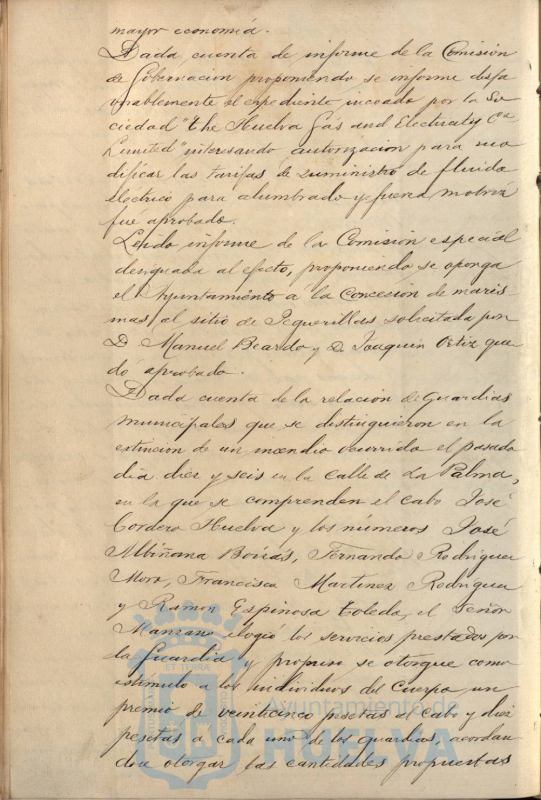 mayor economía.
Dada cuenta de informe de la Comisión
de Gobernacion proponiendo se informe desfa
vorablemente el expediente incoado por la So
ciedad "The Huelva Gas and Electricity Cª
Limited" interesando autorización para mo
dificar las tarifas de suministro de fluido
electrico para alumbrado y fuerza motriz
fue aprobado.
Leido informe de la Comisión especial
designada al efecto, proponiendo se oponga
el Ayuntamiento a la concesion de maris-
mas al sitio de Peguerillas solicitada por
D Manuel Beardo y D. Joaquin Ortiz que
dó aprobado.
Dada cuenta de la relación de Guardias
municipales que se distinguieron en la
extincion de un incendio ocurrido el pasado
dia diez y seis en la calle de La Palma,
en la que se comprenden el cabo José
Cordero Huelva y los números José
Albiñana Boirás, Fernando Rodriguez
Moro, Francisco Martinez Rodriguez
y Ramon Espinosa Toledo, el Señor
Manzano elogió los servicios prestados por
la Guardia y propuso se otorgue como
estímulo a los individuos del Cuerpo un
premio de veinticinco pesetas al Cabo y diez
pesetas a cada uno de los guardias, acordan
dose otorgar las cantidades propuestas
ET TERRA
Ayuntamiento de
HUELVA